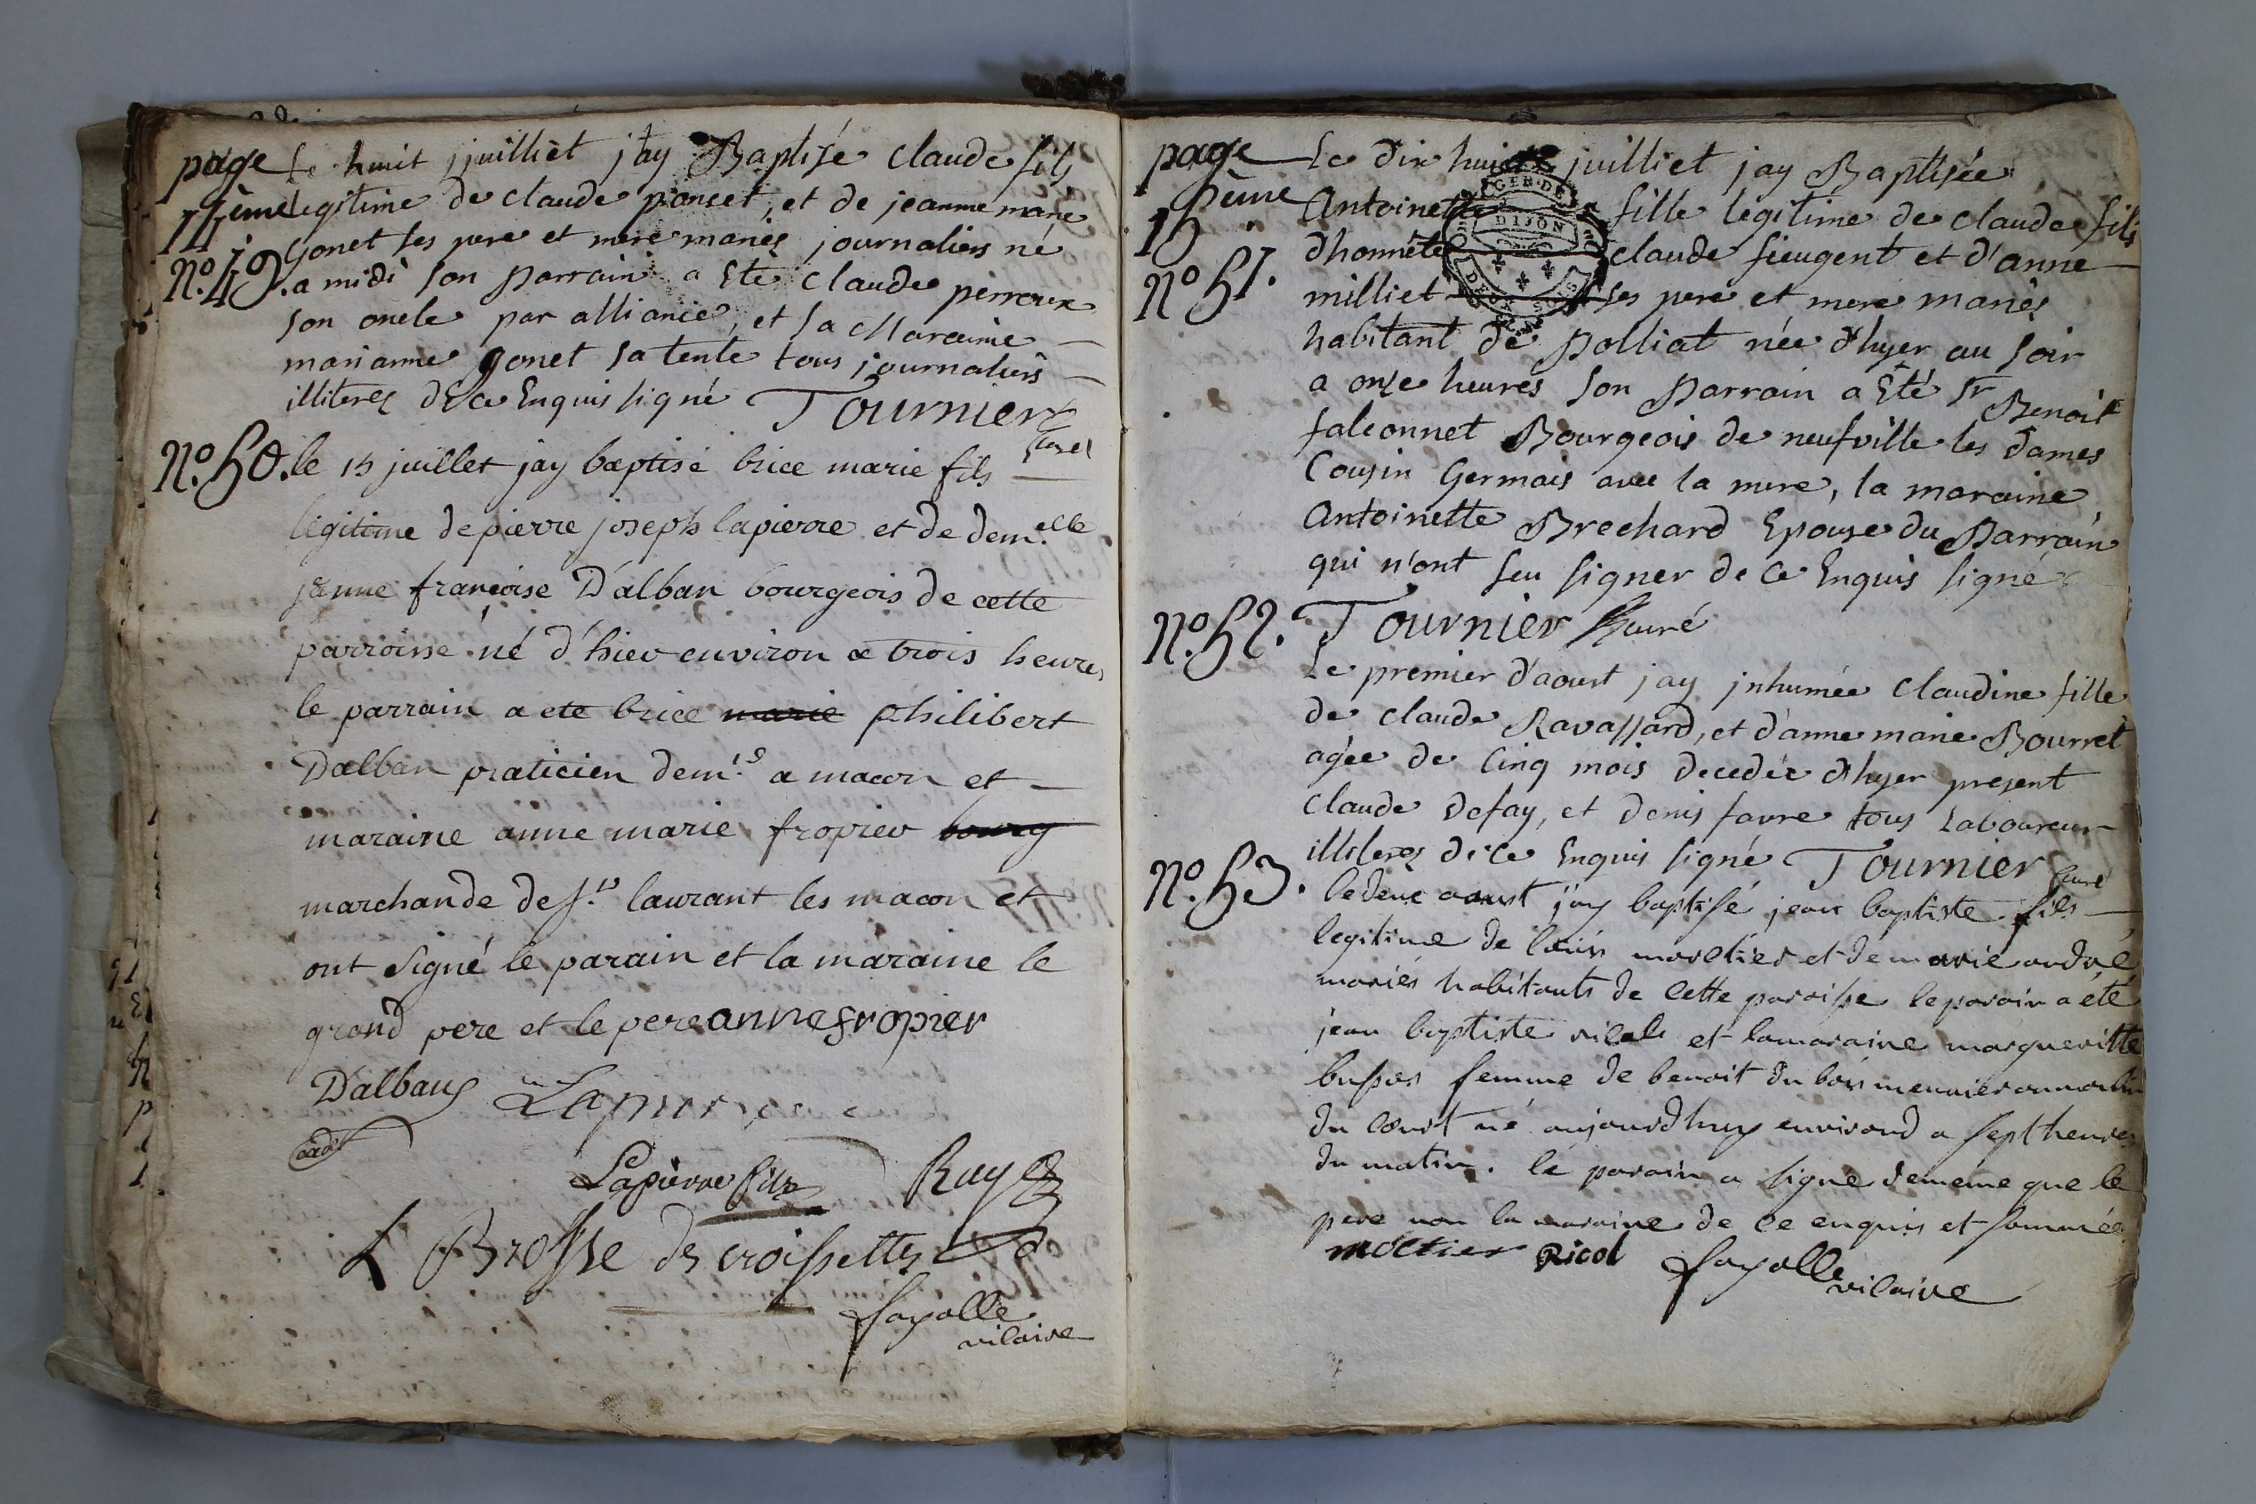 page
14ème
N.º 49.
Le huit jjuilliet j'ay Baptisé claude fils
legitime de claude poncet, et de jeanne marie
gonet ses pere et mere mariès journaliers né
a midi son parrain a Eté claude perroux
son oncle par alliance, et sa Maraine
marianne gonet sa tente tous journaliers
illiteres de ce Enquis signé Tournier
Curé
N.º 50.
le 15 juillet jay baptisé brice marie fils
legitime de pierre joseph lapierre et de dem.elle
jeanne françoise D'alban bourgeois de cette
parroisse né d'hier environ a trois heures
le parrain a eté brice marie philibert
D'alban praticien dem.t a macon et
maraine anne marie fropier bourg
marchande de st. laurant les macon et
ont signé le parain et la maraine le
grand pere et le pere anne fropier
D'alban Lapierre
Lapierre fils Ruy
L Brosse de croissettes
fayolle
vicaire
page
15ème
Nº 51.
Le dix huit juilliet jay Baptisée
Antoinette fille legitime de claude fils
d'honnête claude fieugent et d'anne
milliet ses pere et mere mariès
habitant de Polliat née d'hyer au soir
a onze heures son parrain a Eté Sr Benoit
falconnet Bourgeois de neufville les dames
Cousin Germais avec la mere, la maraine
Antoinette Brechard Epouse du Parrain
qui n'ont seu signer de ce Enquis signé
DIJON
DEUX SOLS
Nº 52.
Tournier Curé
Le premier d'aoust jay jnhumée Claudine fille
de claude Ravassard, et d'anne marie Bourret
agée de Cinq mois decedée d'hyer present
claude defay, et denis favre tous Laboureur
illiteres de ce Enquis signé Tournier
Curé
Nº. 53.
le deux aoust j'ay baptisé jean baptiste fils
legitime de louis moretier et de marie andré
mariés habitants de cette paroisse le parain a été
jean baptiste et la maraine margueritte
femme de benoit du bois meunier au moulin
du né aujourdhuy environd a sept heures
du matin. le parain a signé de meme que le
pere non la maraine de ce enquis et sommée
Ricol fayolle vicaire